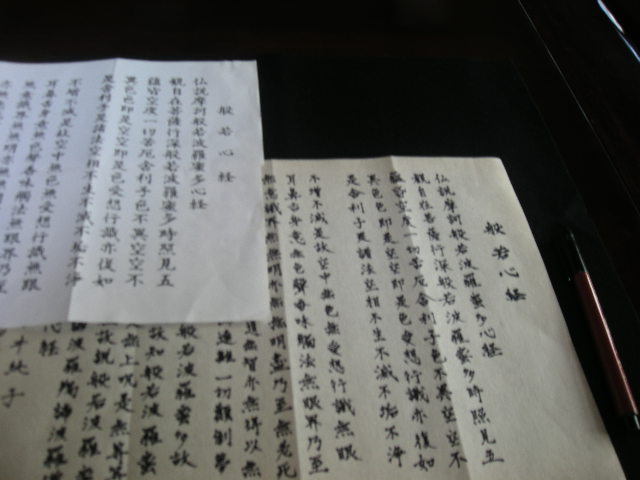 般若心経
仏説摩訶般若波羅蜜多心経
観自在菩薩行深般若波羅蜜多時照見五
蘊皆空度一切苦厄舎利子色不異空空不
異色色即是空空即是色受想行識亦復如
是舎利子是諸法空相不生不滅不垢不浄
不増不減是故空中無色無受想行識無眼
耳鼻舌身意無色聲香味觸法無眼界乃至
無意識界無無明亦無無明盡乃至無老死
無智亦無得以無
遠離一切顛倒夢
般若波羅蜜多故
故知般若波羅蜜
無上呪是無等等
故説般若波羅蜜
諦波羅羯諦波羅
心経
純子
般若心経
仏説摩訶般若波羅蜜多心経
観自在菩薩行深般若波羅蜜多時照見五
蘊皆空度一切苦厄舎利子色不異空空不
異色色即是空空即是色受想行識亦復如
是舎利子是諸法空相不生不滅不垢不浄
不増不減是故空中無色無受想行識無眼
耳鼻舌身意無色聲香味觸法無眼界乃至
無意識界無無明亦無無明